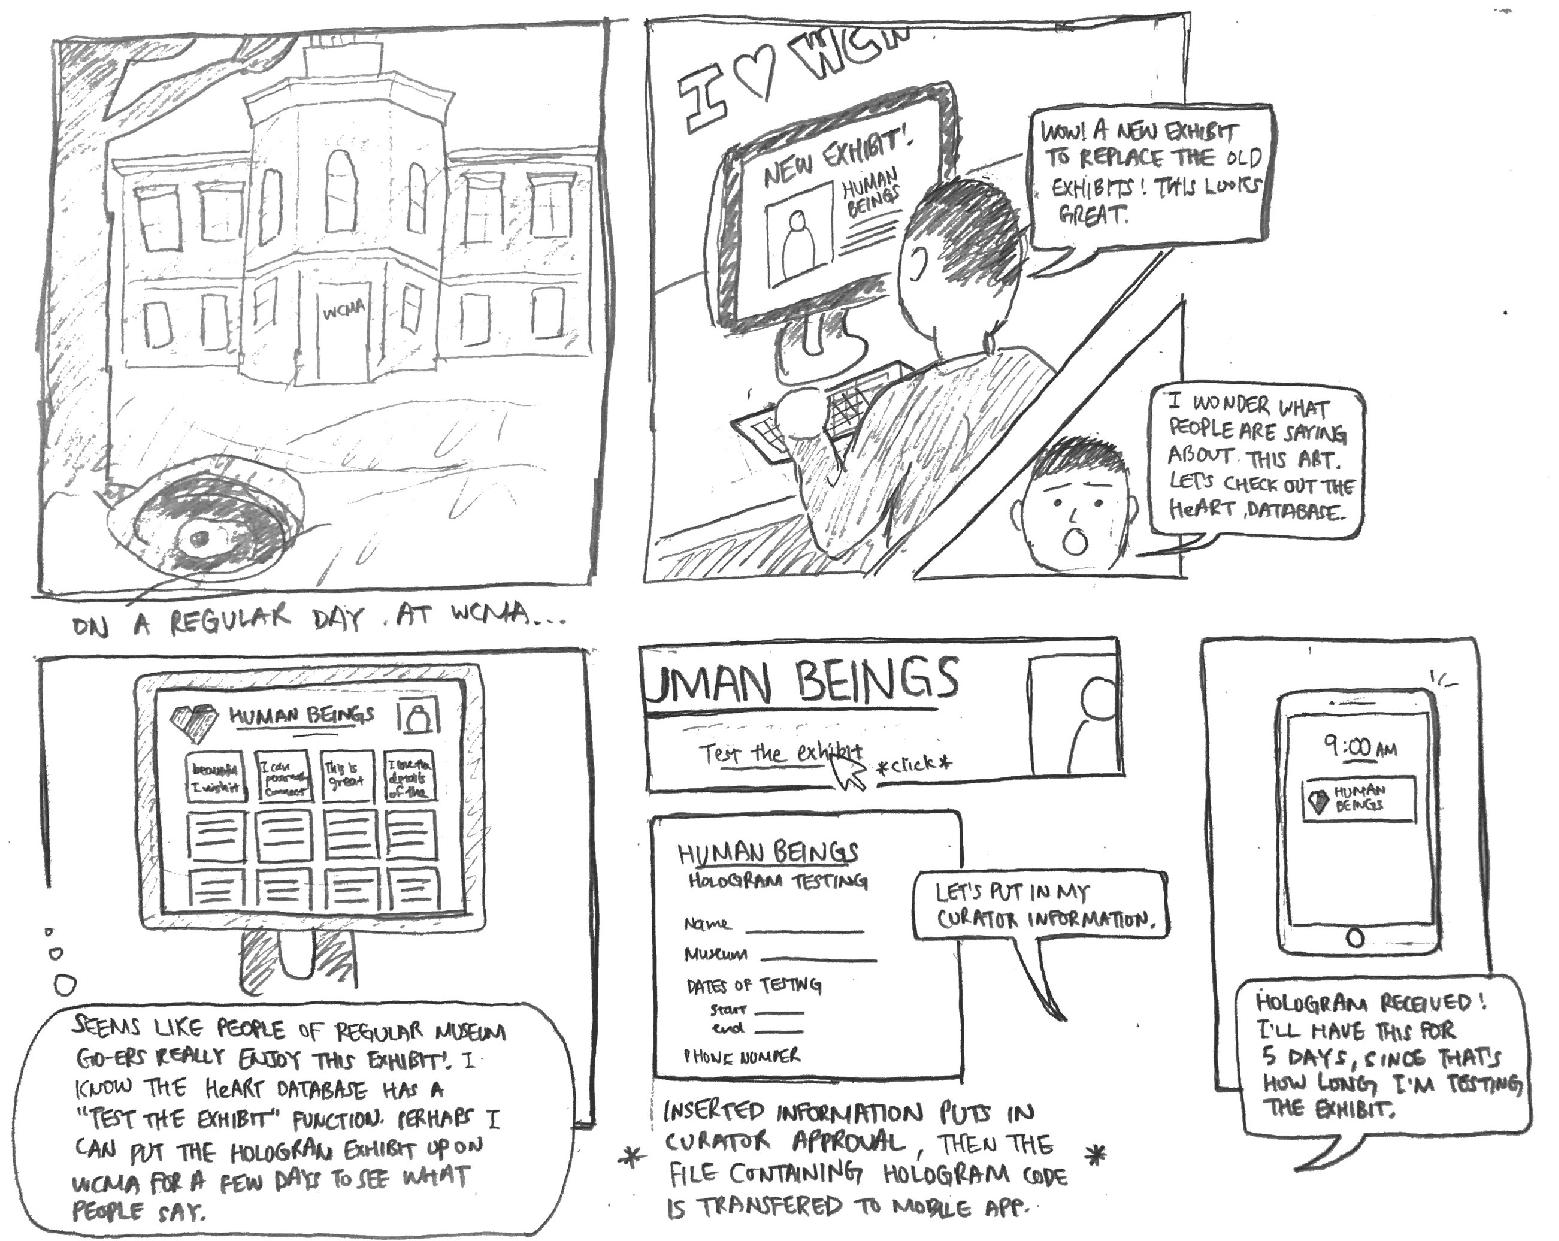 WCMA
ON A REGULAR DAY. AT WCMA...
I ♡ WCM
NEW EXHIBIT!
HUMAN
BEINGS
WOW! A NEW EXHIBIT
TO REPLACE THE OLD
EXHIBITS! THIS LOOKS
GREAT.
I WONDER WHAT
PEOPLE ARE SAYING
ABOUT THIS ART.
LET'S CHECK OUT THE
HeART DATABASE.
HUMAN BEINGS
beautiful
I wish it
I can
connect
This is
great
I love the
details
of the
SEEMS LIKE PEOPLE OF REGULAR MUSEUM
GO-ERS REALLY ENJOY THIS EXHIBIT! I
KNOW THE HeART DATABASE HAS A
"TEST THE EXHIBIT" FUNCTION. PERHAPS I
CAN PUT THE HOLOGRAM EXHIBIT UP ON
WCMA FOR A FEW DAYS TO SEE WHAT
PEOPLE SAY.
UMAN BEINGS
Test the exhibit
*click*
HUMAN BEINGS
HOLOGRAM TESTING
Name
Museum
DATES OF TESTING
start
end
PHONE NUMBER
LET'S PUT IN MY
CURATOR INFORMATION.
* INSERTED INFORMATION PUTS IN
CURATOR APPROVAL, THEN THE *
FILE CONTAINING HOLOGRAM CODE
IS TRANSFERED TO MOBILE APP.
9:00 AM
HUMAN
BEINGS
HOLOGRAM RECEIVED!
I'LL HAVE THIS FOR
5 DAYS, SINCE THAT'S
HOW LONG I'M TESTING
THE EXHIBIT.